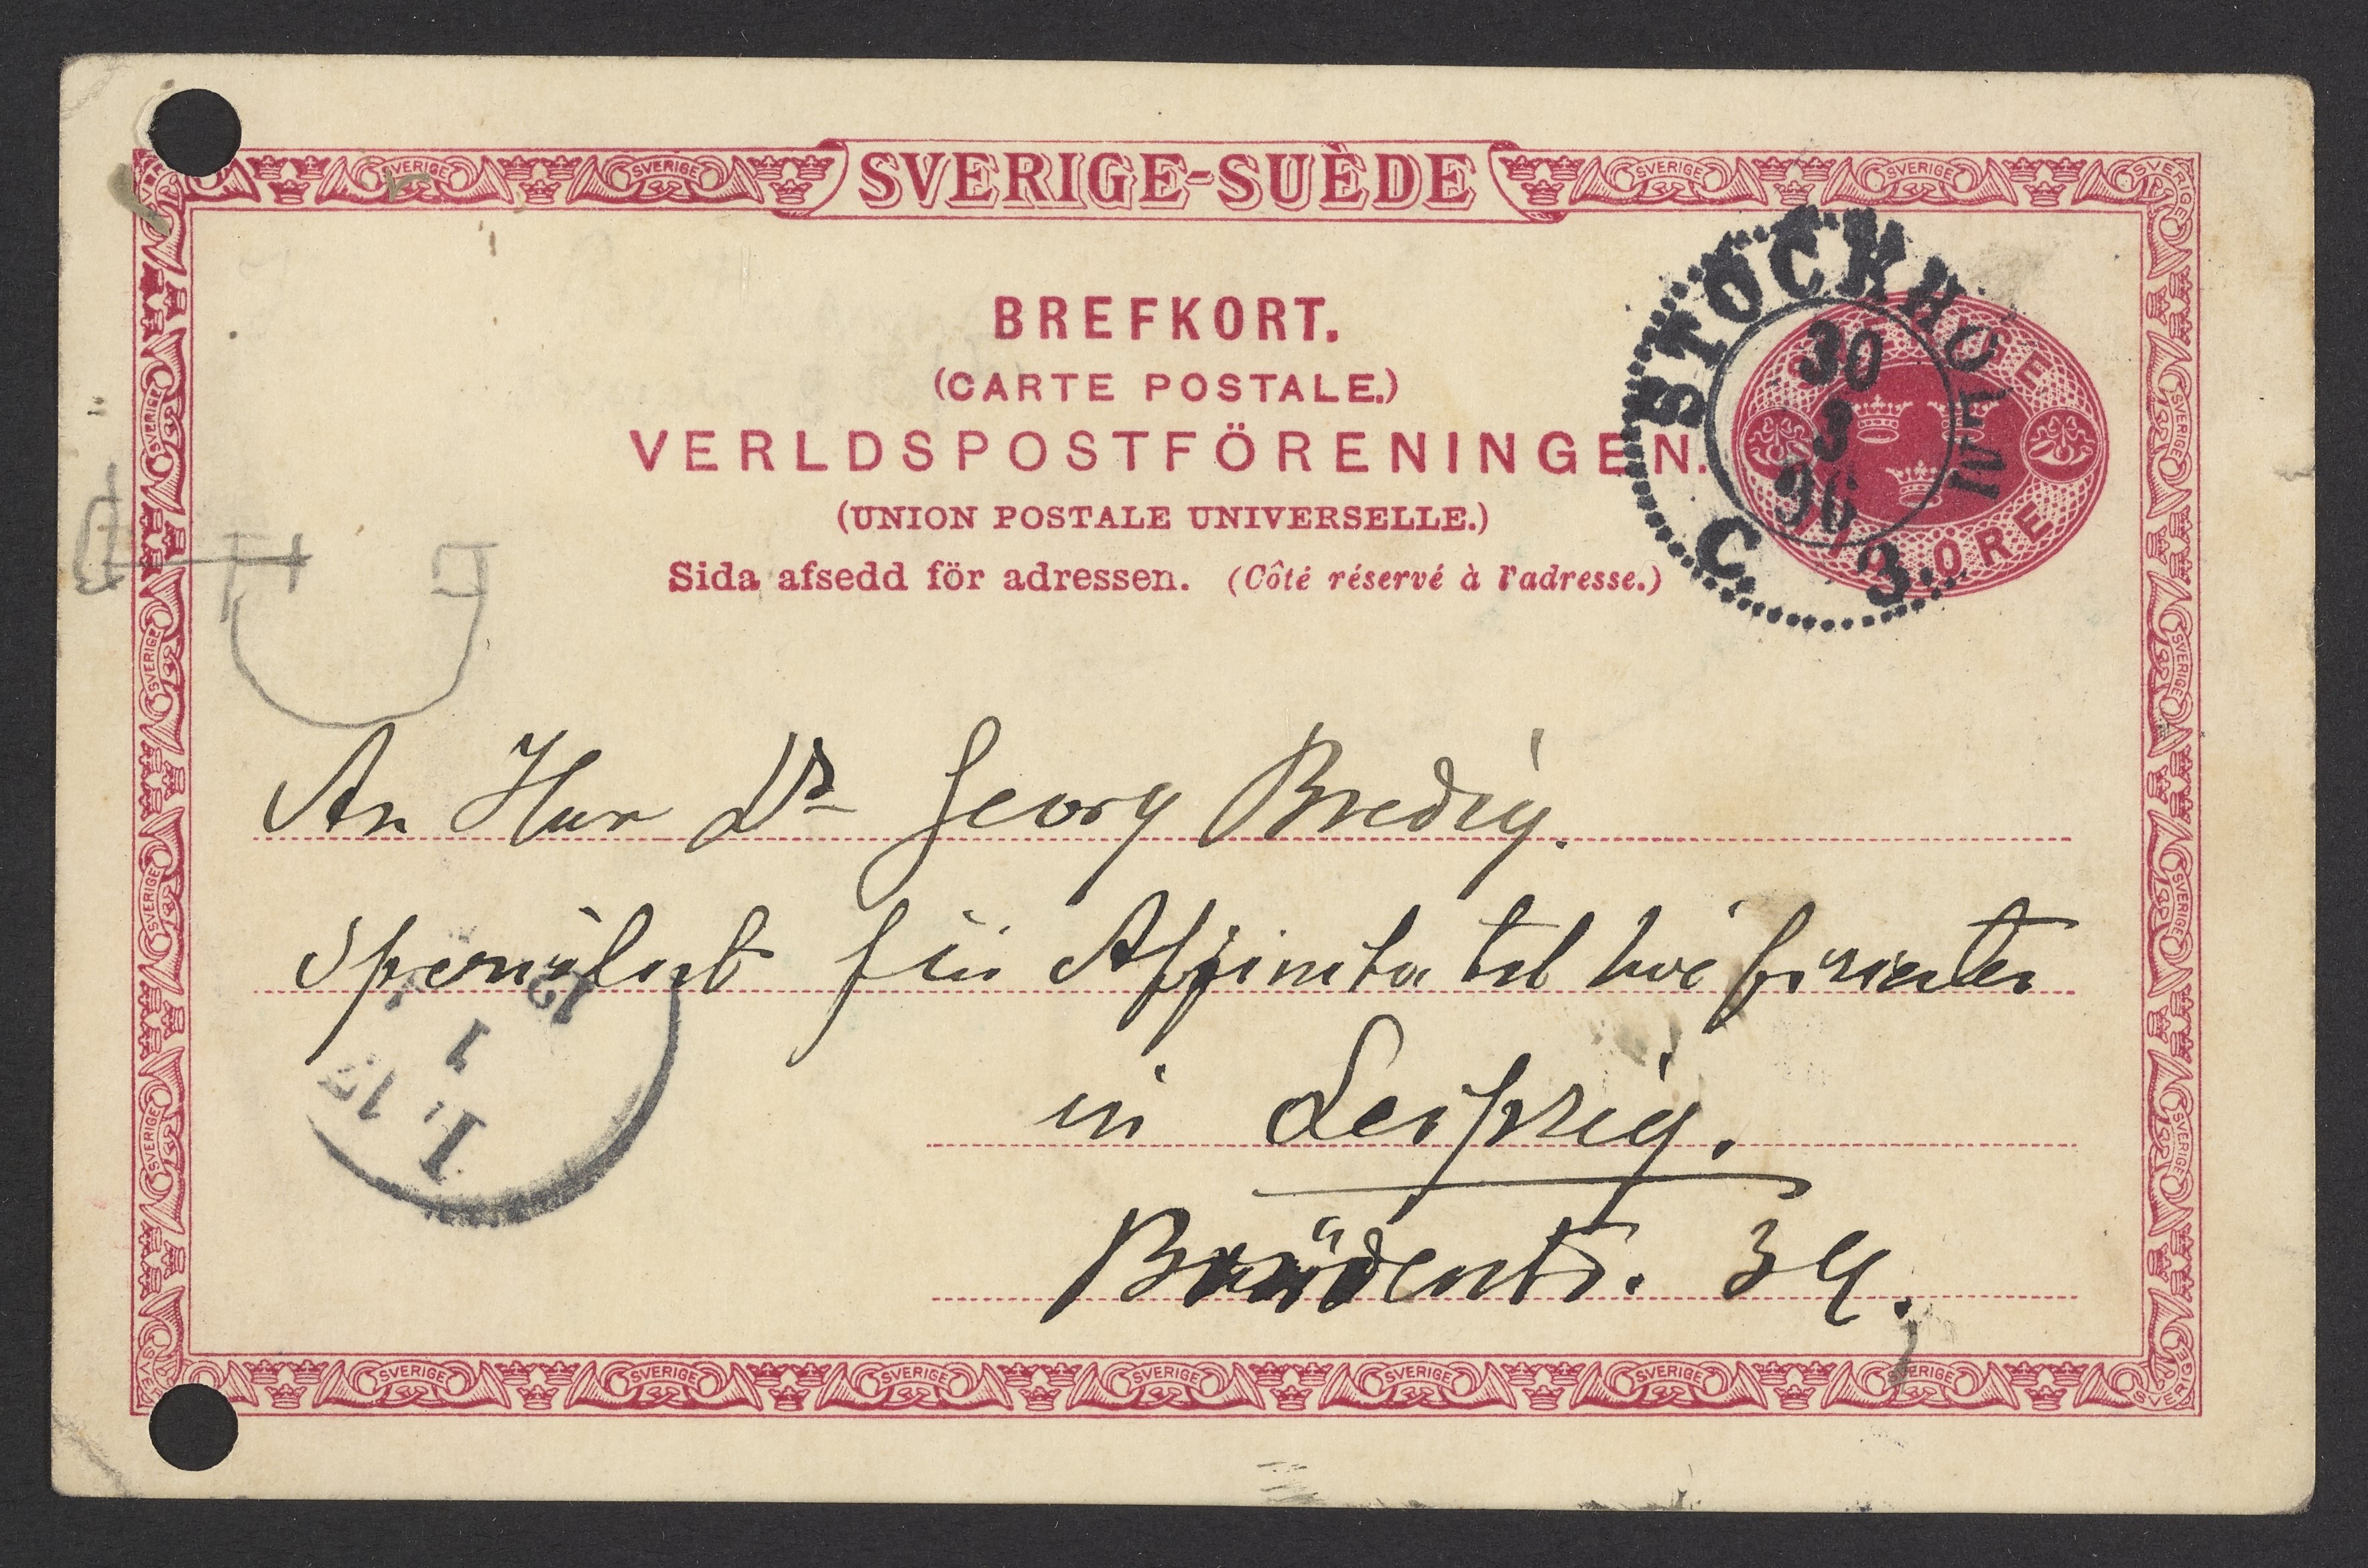 SVERIGE-SUÈDE
BREFKORT.
(CARTE POSTALE.)
VERLDSPOSTFÖRENINGEN.
(UNION POSTALE UNIVERSELLE.)
Sida afsedd för adressen. (Côté réservé à l'adresse.)
STOCKHOLM
30
3
96
C. 3.
ÖRE
An Herr Dr Georg Bredig.
Spezialist für Affinität
in Leipzig.